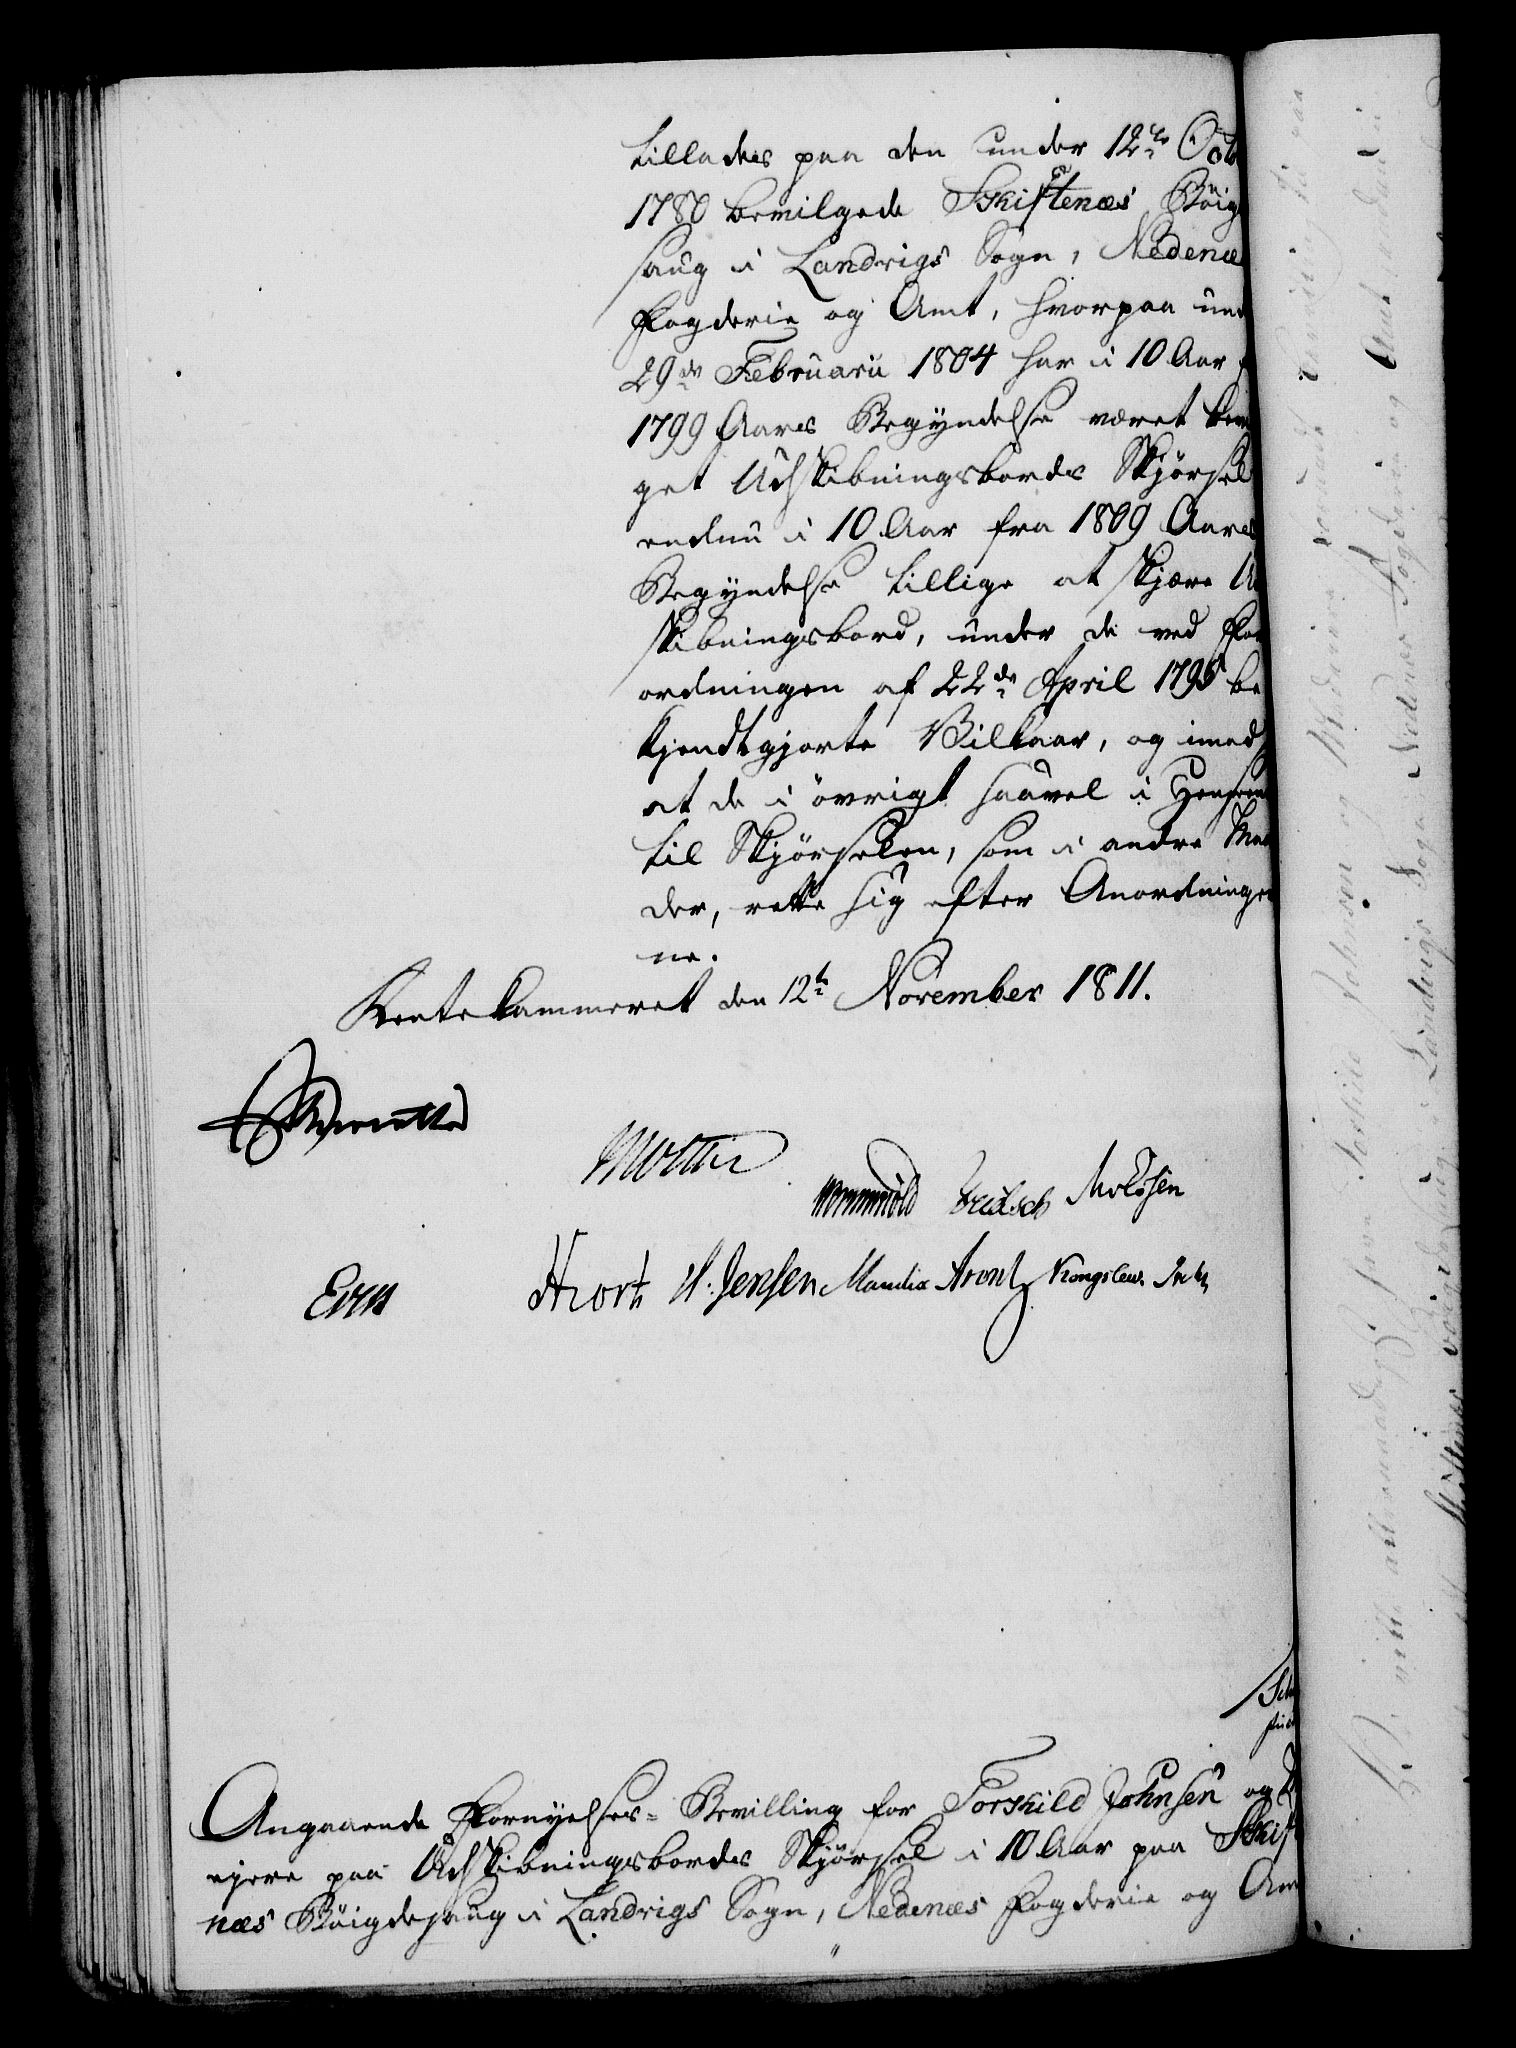 tillades paa den under 12te Octb
1780 bevilgede Skiftenæs Böig
saug i Landvigs Sogn, Nedenæ
Fogderie og Amt, hvorpaa und
29de Februarii 1804 har i 10 Aar f
1799 Aars Begyndelse været bevil
get Udskibningsbords Skjørsel
endnu i 10 Aar fra 1809 Aars
Begyndelse tillige at skjære U
skibningsbord, under de ved For
ordningen af 22de April 1795 be
kjendtgjorte Vilkaar, og imod
at de i övrigt saavel i Henseende
til Skjørselen, som i andre Maa
der, rette sig efter Anordninger
ne.
Rentekammeret den 12te November 1811.
Molthe
Wormskiold
Hiorth H. Jensen Manthe Arentz Kongslew
Angaaende Fornyelses-Bevilling for Torskild Johnsen og
ejere paa Udskibningsbords Skjørsel i 10 Aar paa Skif
næs Böigdesaug i Landvigs Sogn, Nedenæs Fogderie og Am